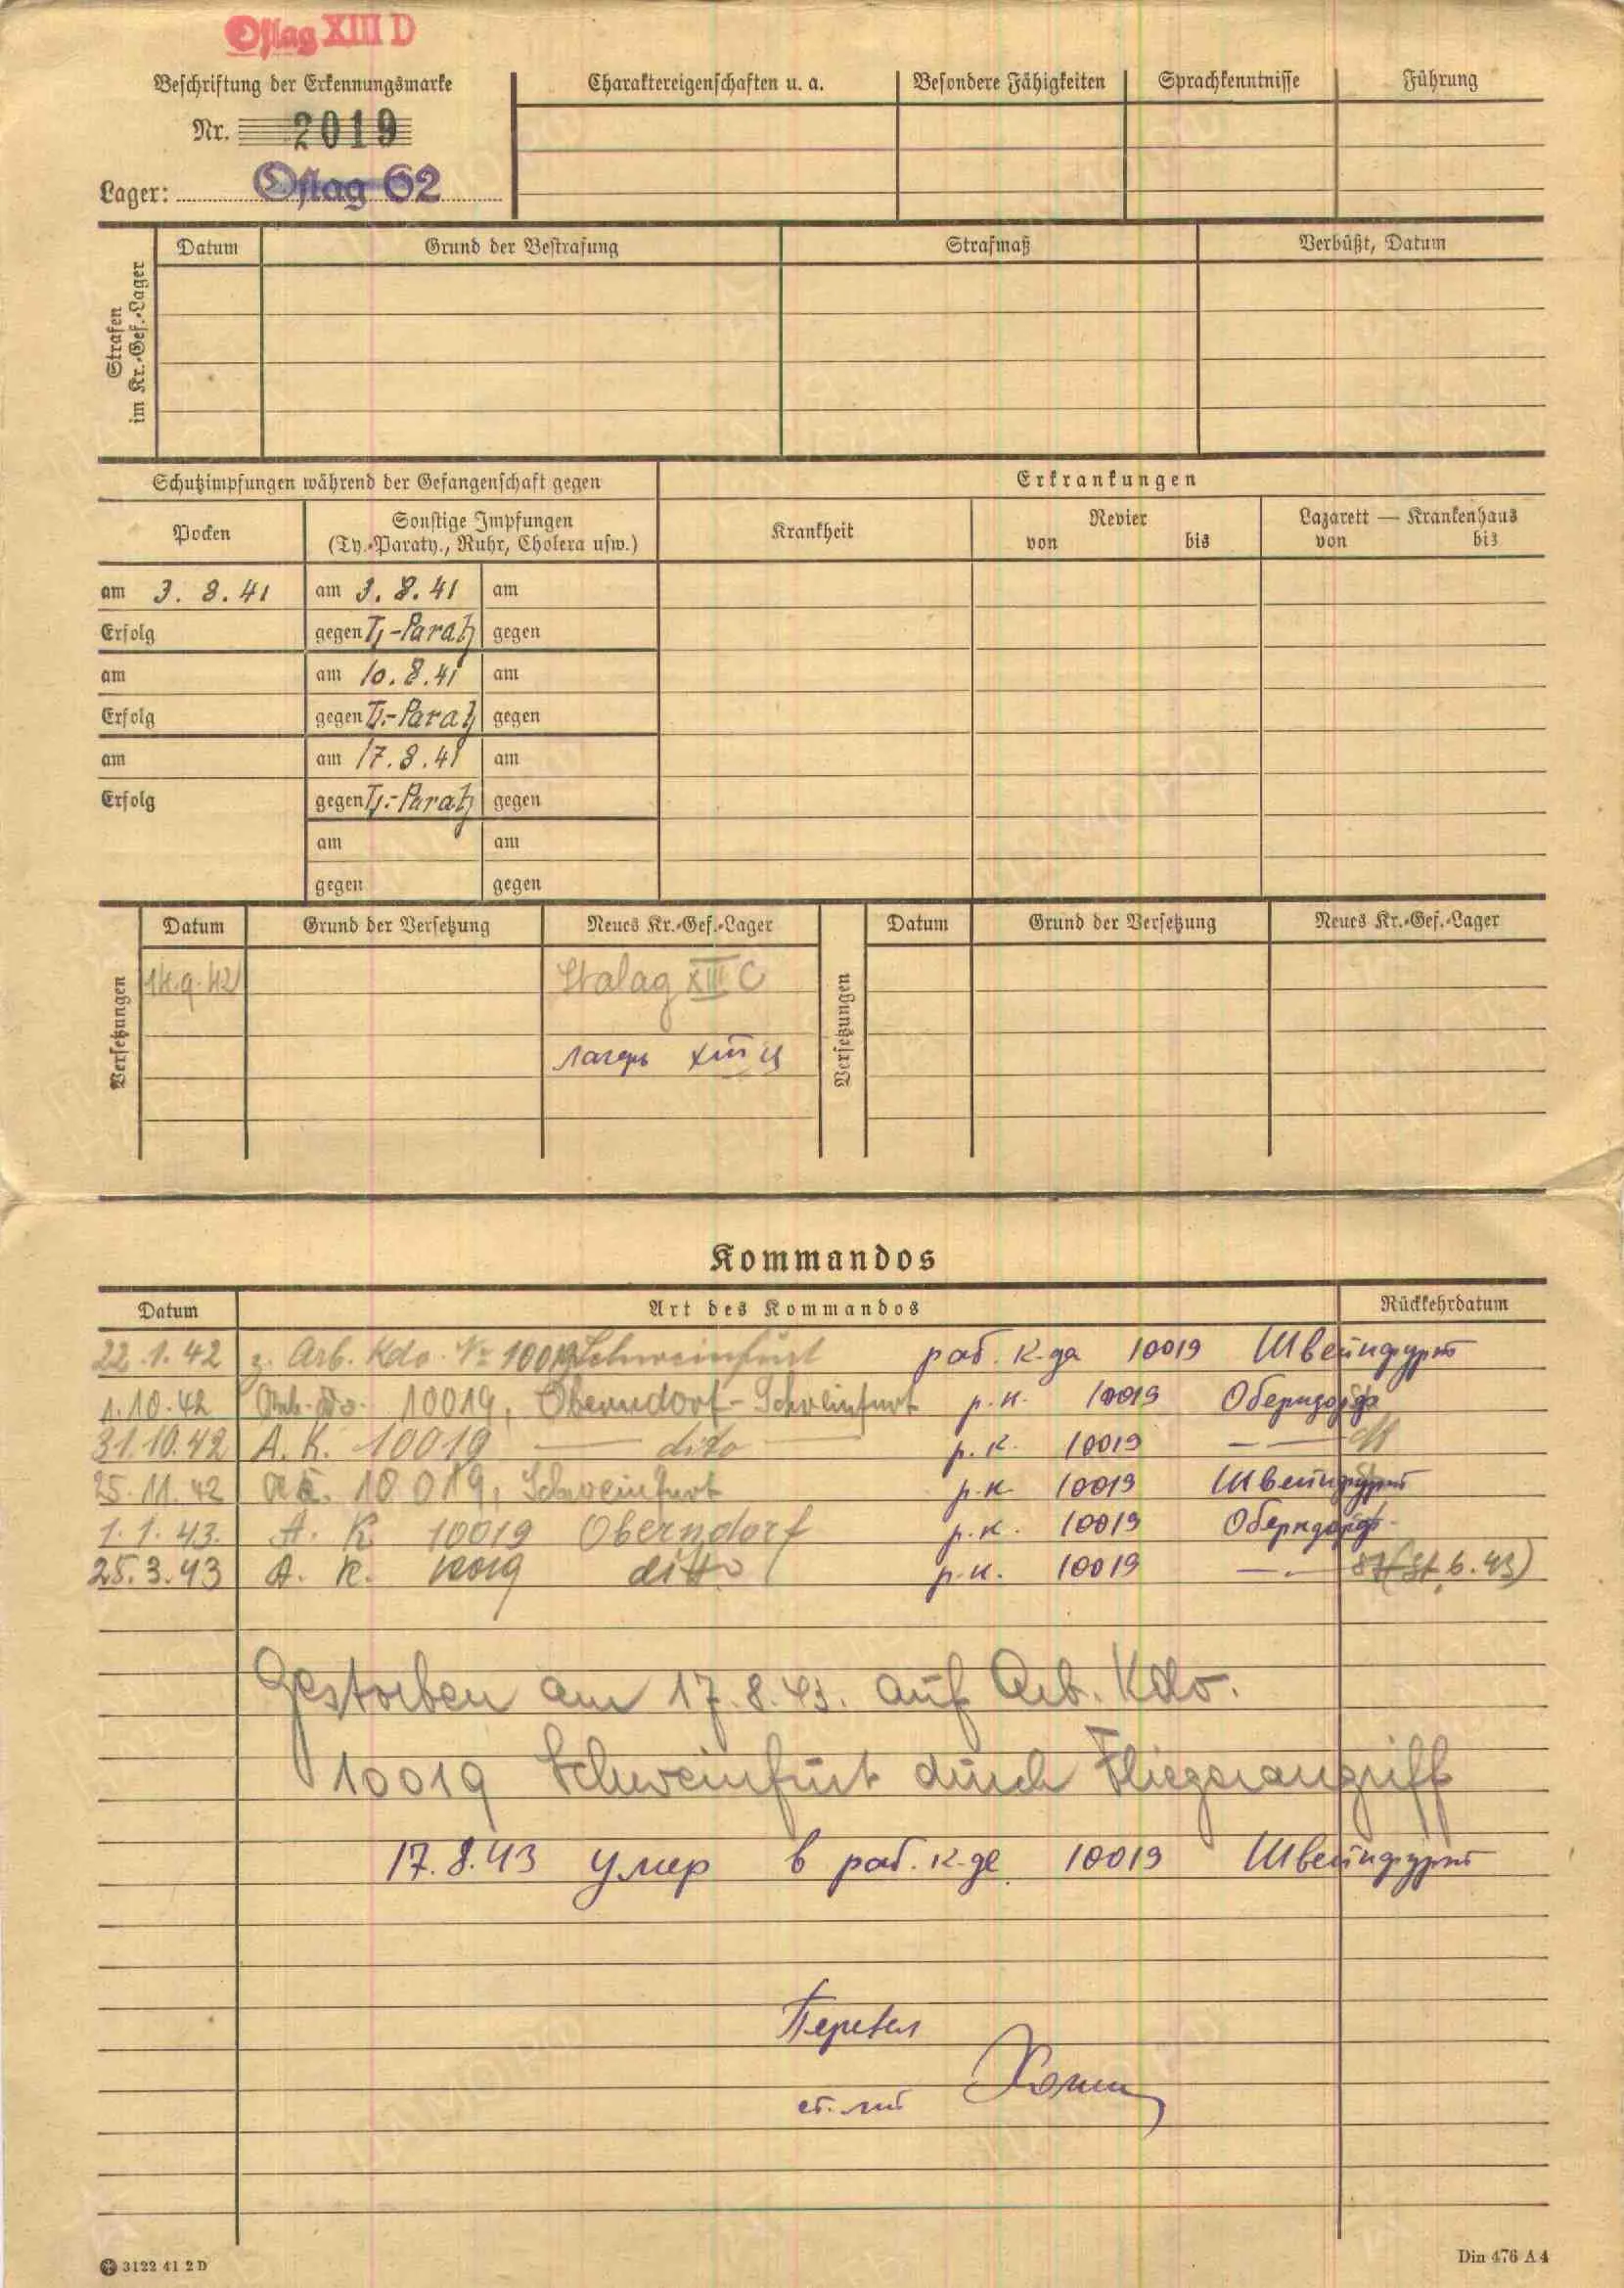 Oflag XIII D
Beschriftung der Erkennungsmarke
Nr. 2019
Lager: Oflag 62
Charaktereigenschaften u. a. Besondere Fähigkeiten Sprachkenntnisse Führung
Strafen im Kr.-Gef.-Lager
Datum Grund der Bestrafung Strafmaß Verbüßt, Datum
Schutzimpfungen während der Gefangenschaft gegen
Erkrankungen
Pocken
Sonstige Impfungen
(Ty.-Paraty., Ruhr, Cholera usw.)
Krankheit
Revier
von bis
Lazarett — Krankenhaus
von bis
am 3. 8. 41 am 3. 8. 41 am
Erfolg gegen Ty-Paraty gegen
am am 10. 8. 41 am
Erfolg gegen Ty.-Paraty gegen
am am 17. 8. 41 am
Erfolg gegen Ty.-Paraty gegen
am am
gegen gegen
Versetzungen
Datum Grund der Versetzung Neues Kr.-Gef.-Lager
14.9.42 Stalag XIII C
лагерь XIII Ц
Versetzungen
Datum Grund der Versetzung Neues Kr.-Gef.-Lager
Kommandos
Datum Art des Kommandos Rückkehrdatum
22.1.42 z. Arb. Kdo. Nr 10019 Schweinfurt раб. к-да 10019 Швейнфурт
1.10.42 Arb. Kdo. 10019, Oberndorf-Schweinfurt р.к. 10019 Оберндорф
31.10.42 A. K. 10019 — dito — р.к. 10019 — " —
25.11.42 A.K. 10019, Schweinfurt р.к. 10019 Швейнфурт
1.1.43. A. K 10019 Oberndorf р.к. 10019 Оберндорф.
25.3.43 A. K. 10019 ditto р.к. 10019 — " —
Gestorben am 17.8.43. auf Arb. Kdo.
10019 Schweinfurt durch Fliegerangriff
17.8.43 умер в раб. к-де 10019 Швейнфурт
Перевел
ст. л-т
3122 41 2 D
Din 476 A 4